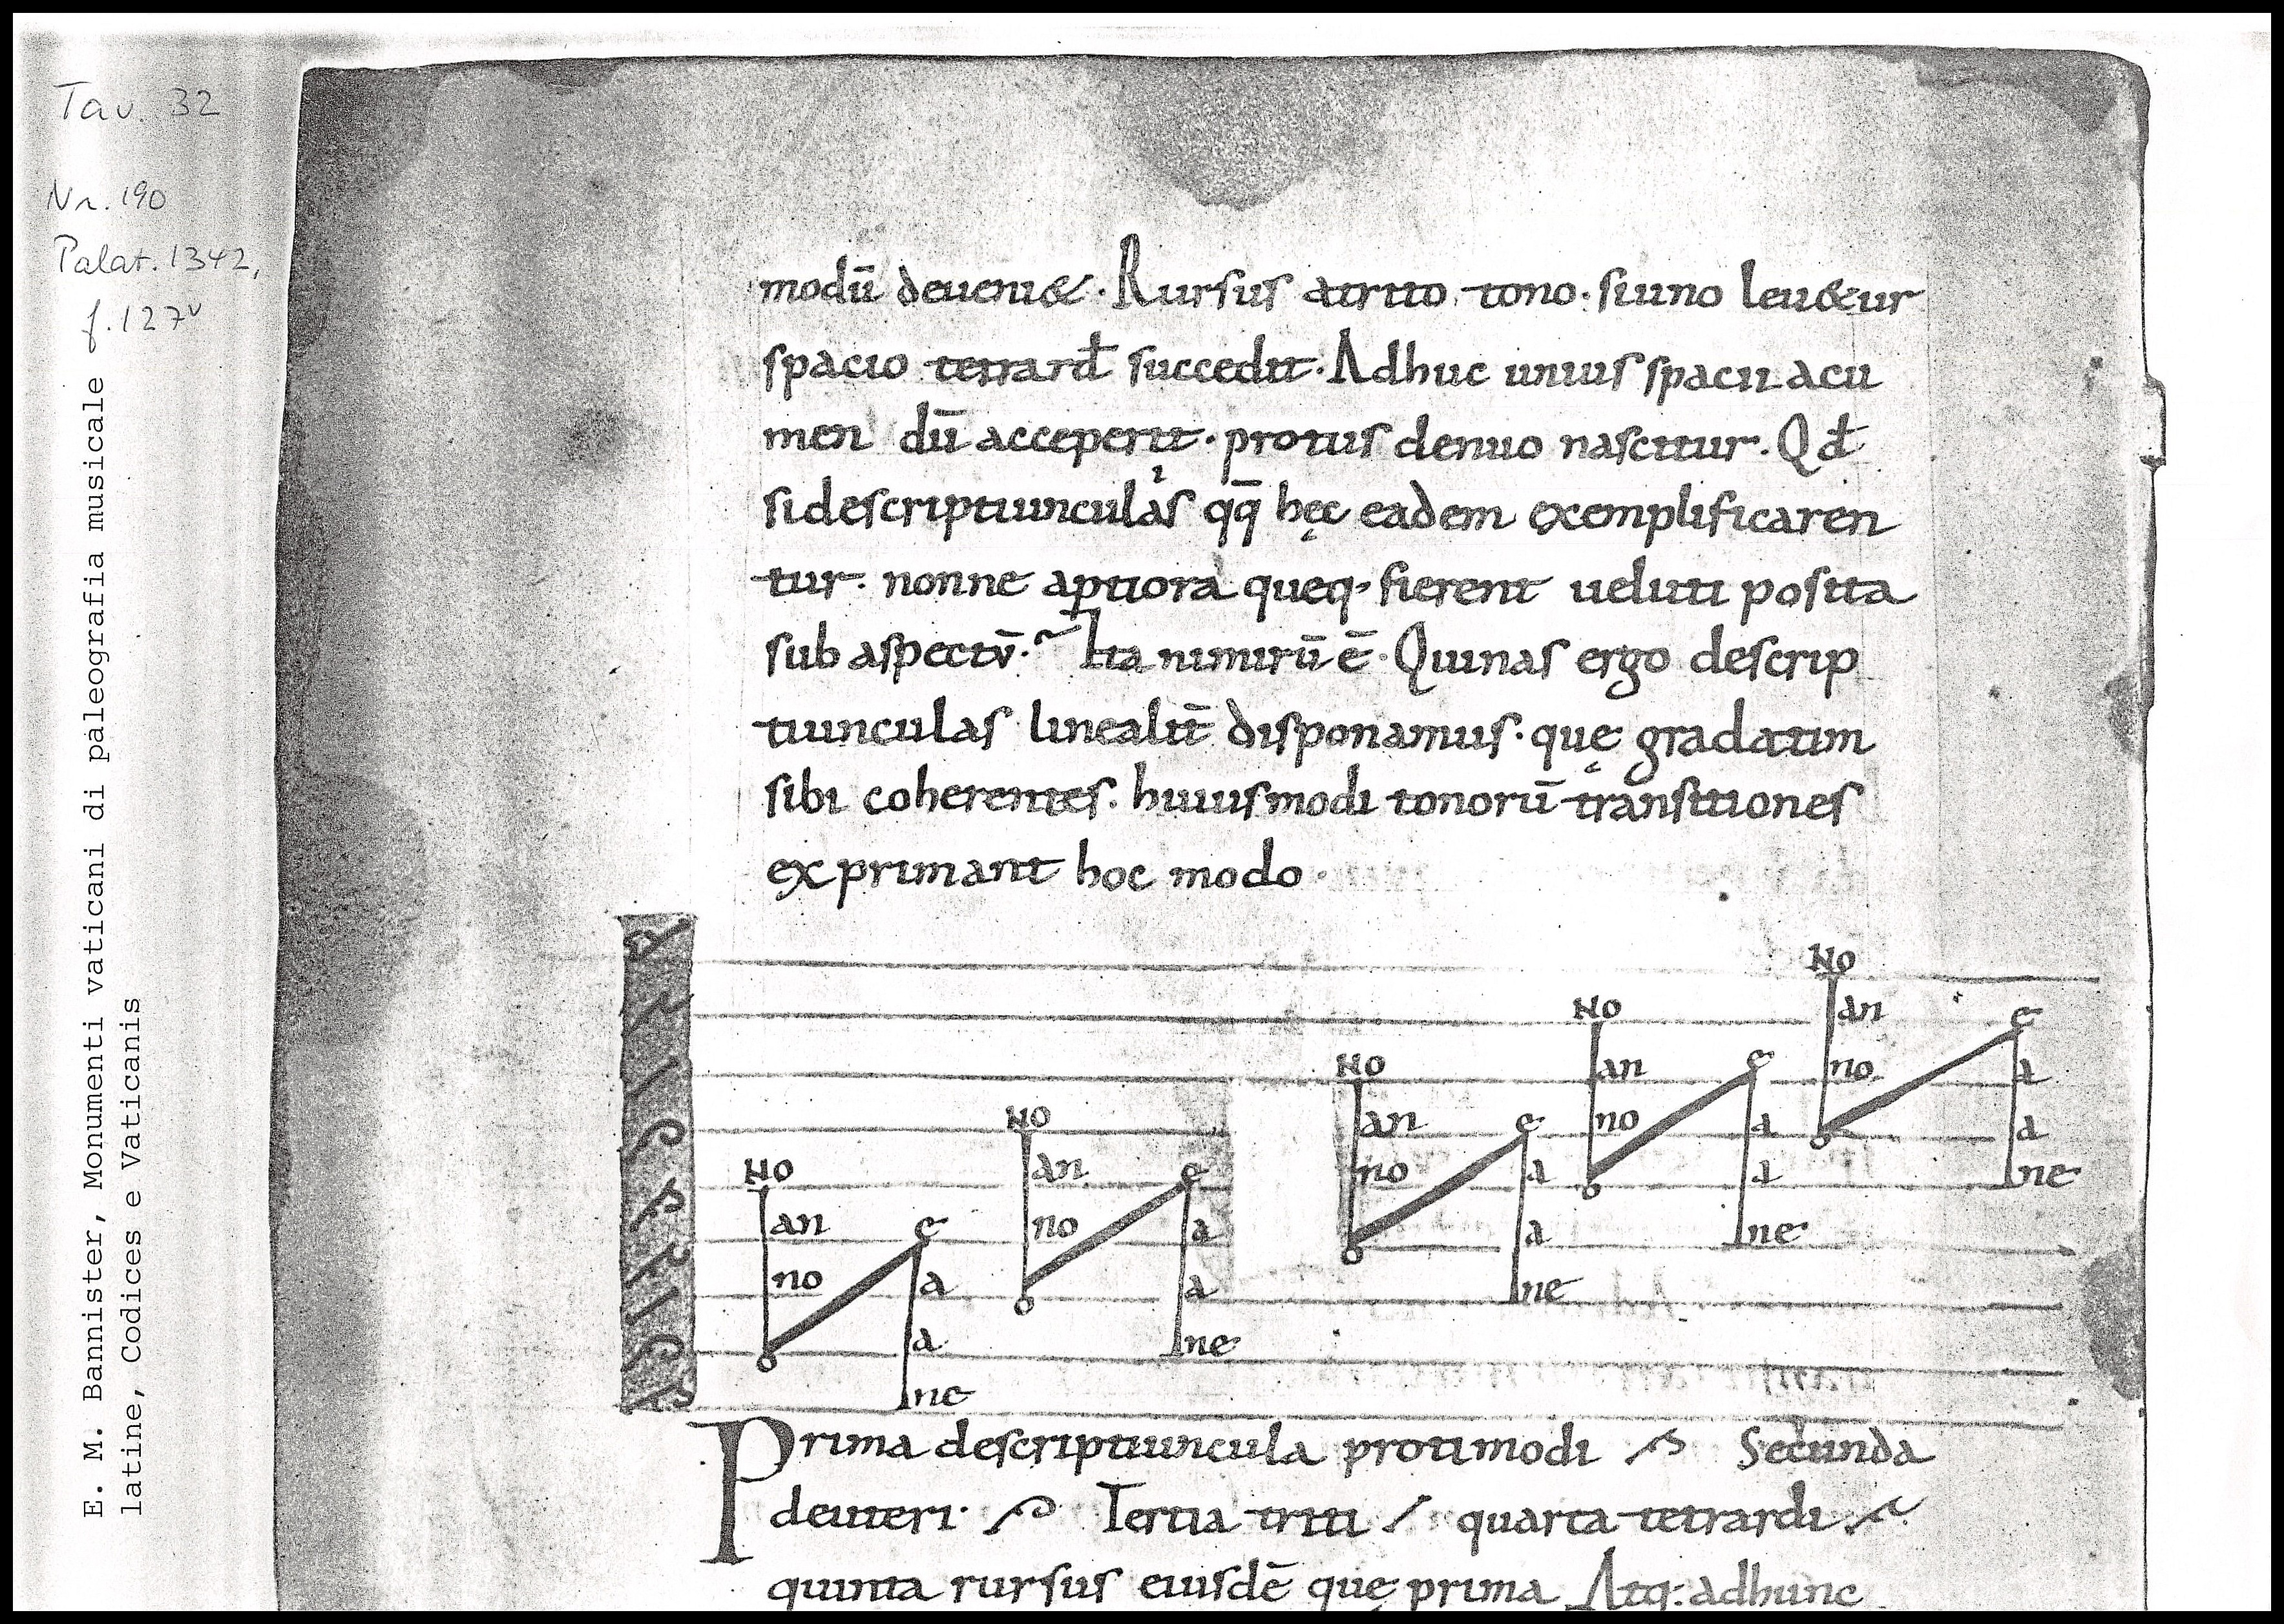 Tav. 32
Nr. 190
Palat. 1342,
f. 127v
E. M. Bannister, Monumenti vaticani di paleografia musicale
latine, Codices e Vaticanis
modū deueni&. Rursus atrito tono. siuno leu&ur
spacio tetrard̄ succedit. Adhuc unius spacii acu
men dū acceperit. protus denuo nascitur. Qđ
sidescriptiunculis qq̄ hęc eadem exemplificaren
tur. nonne aptiora queq; fierent ueluti posita
sub aspectū. Ita nimirū ē. Quinas ergo descrip
tiunculas linealit̄ disponamus. quę gradatim
sibi coherentes. huiusmodi tonorū transitiones
exprimant hoc modo.
No an no e o e a a ne
No an no e o e a a ne
No an no e o e a a ne
No an no e o e a a ne
No an no e o e a a ne
Prima descriptiuncula proti modi Secunda
deuteri. Tertia triti quarta tetrardi
quinta rursus eiusdē quę prima Atq: adhunc